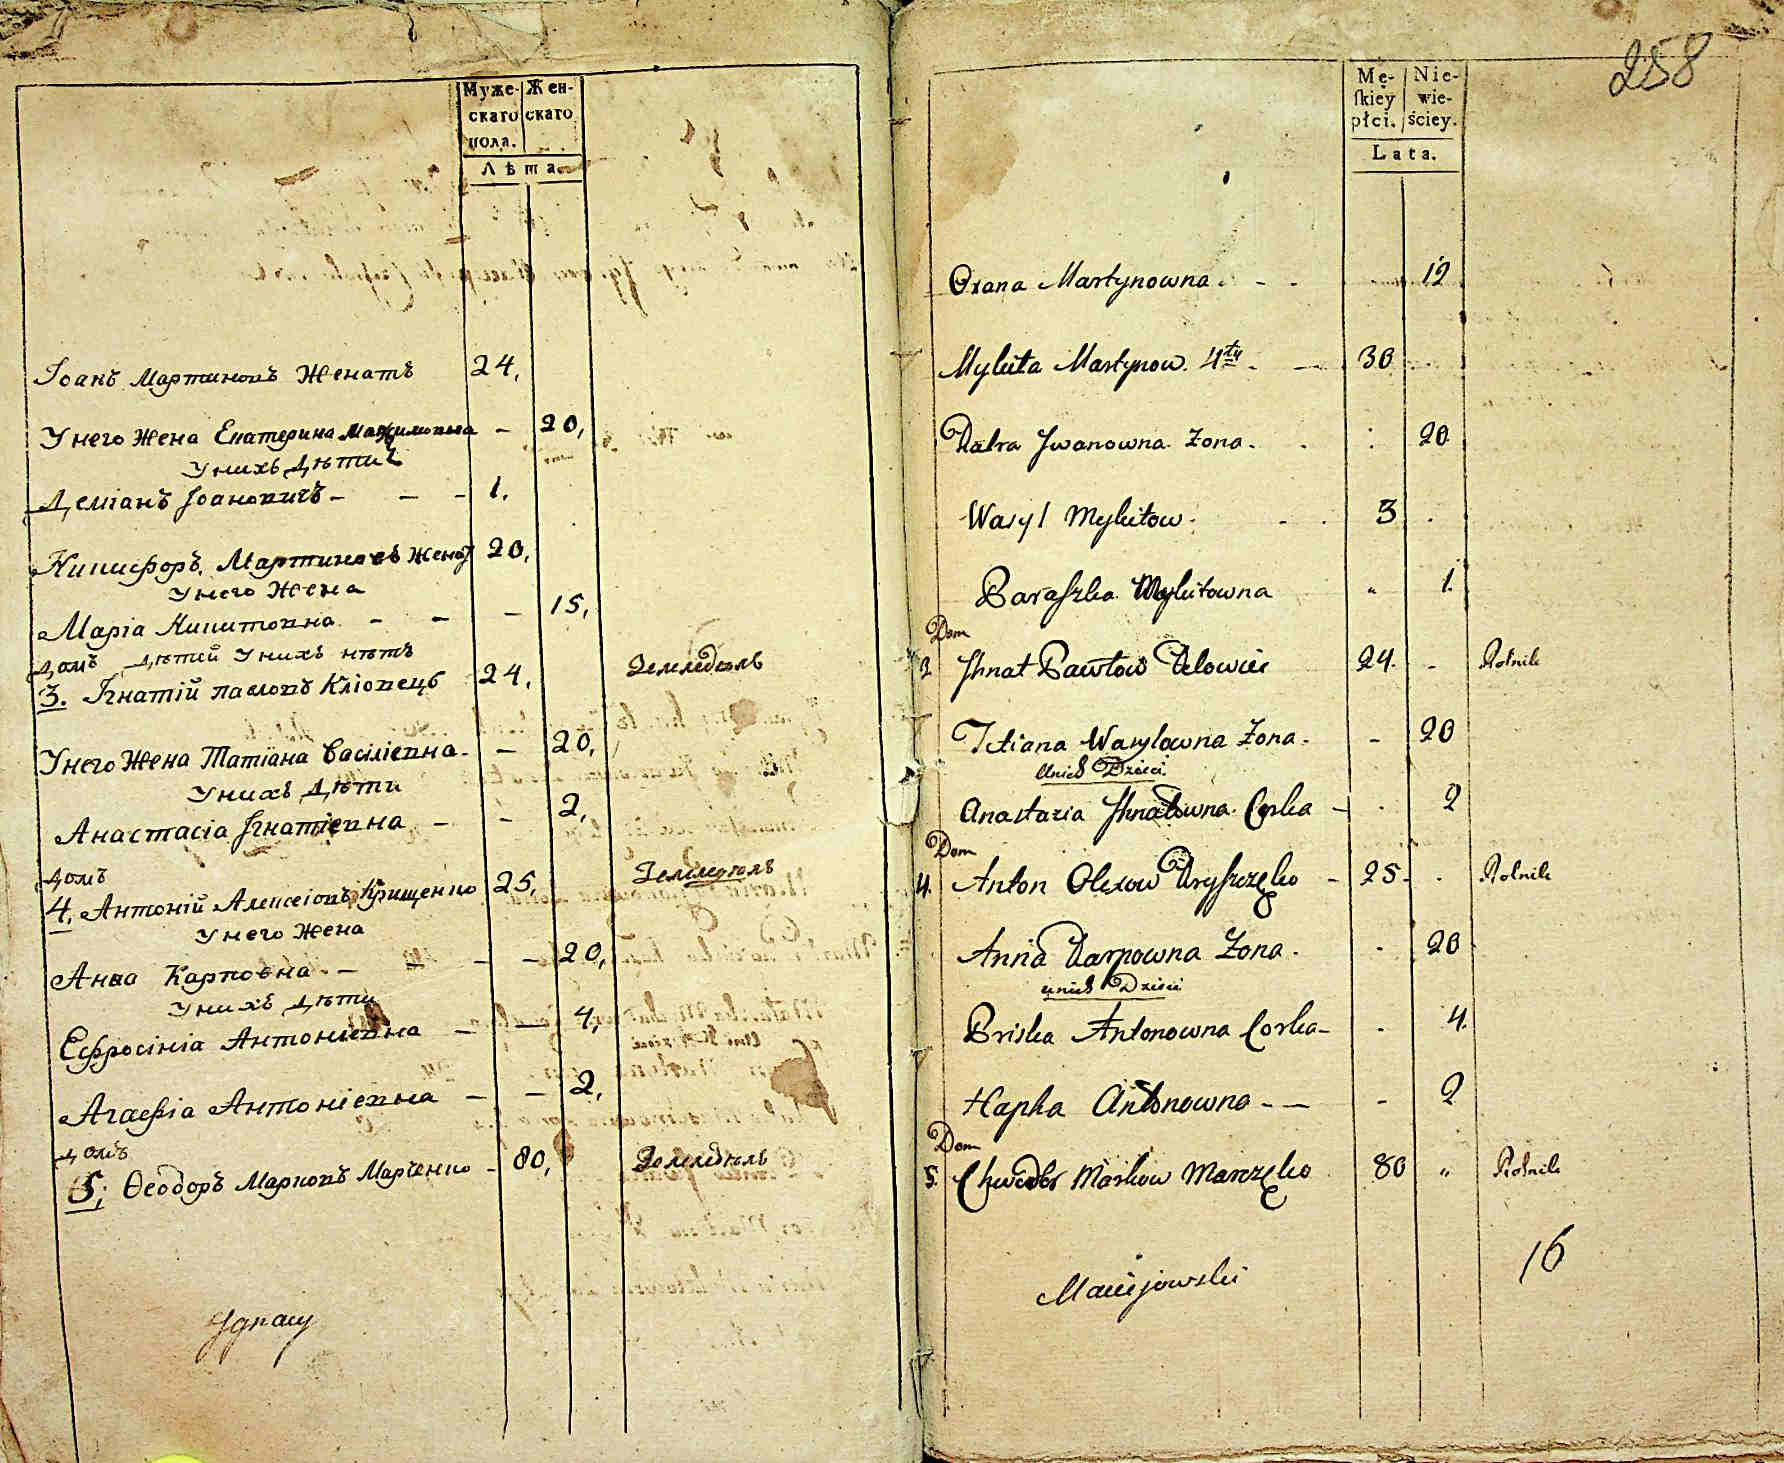 Муже- Жен-
скаго скаго
пола.
Лѣта.
Іоанъ Мартиновъ Женатъ 24,
У него Жена Екатерина Максимовна – 20,
У нихъ Дѣти
Деміанъ Іоановичъ – – – 1.
Никифоръ Мартиновъ Женатъ 20,
У него Жена
Маріа Никитовна – – – 15,
Домъ Дѣтей У нихъ нѣтъ
3. Ігнатій Павловъ Кліовецъ 24, Земледѣль
У него Жена Татіана Василіевна – – 20,
У нихъ Дѣти
Анастасіа Ігнатіевна – – 2,
Домъ
4. Антоній Алексіовъ Крищенко 25, Земледѣль
У него Жена
Анна Карповна – – – – 20,
У нихъ Дѣти
Ефросініа Антоніевна – – 4,
Агафіа Антоніевна – – 2,
Домъ
5, Ѳеодоръ Марковъ Марченко – 80, Земледѣль
Ignacy
258
Mę- Nie-
skiey wie-
płci. ściey.
Lata.
Oxana Martynowna 12
Mykita Martynow 4ty 30
Iwanowna Żona 20
Wasyl Mykitow 3
Paraszka Mykitowna 1
Dom
3 Ihnat Pawłow 24 Rolnik
Tatiana Wasylowna Żona – 20
Unich Dzieci
Anastazia Ihnatowna Corka – 2
Dom
4. Anton Olexow Kryszczęko – 25 Rolnik
Anna Karpowna Żona 20
unich Dzieci
Priska Antonowna Corka – 4.
Hapka Antonowna – – – 2
Dom
5. Chwedor Markow Marczęko 80 „ Rolnik
16
Maciejowski